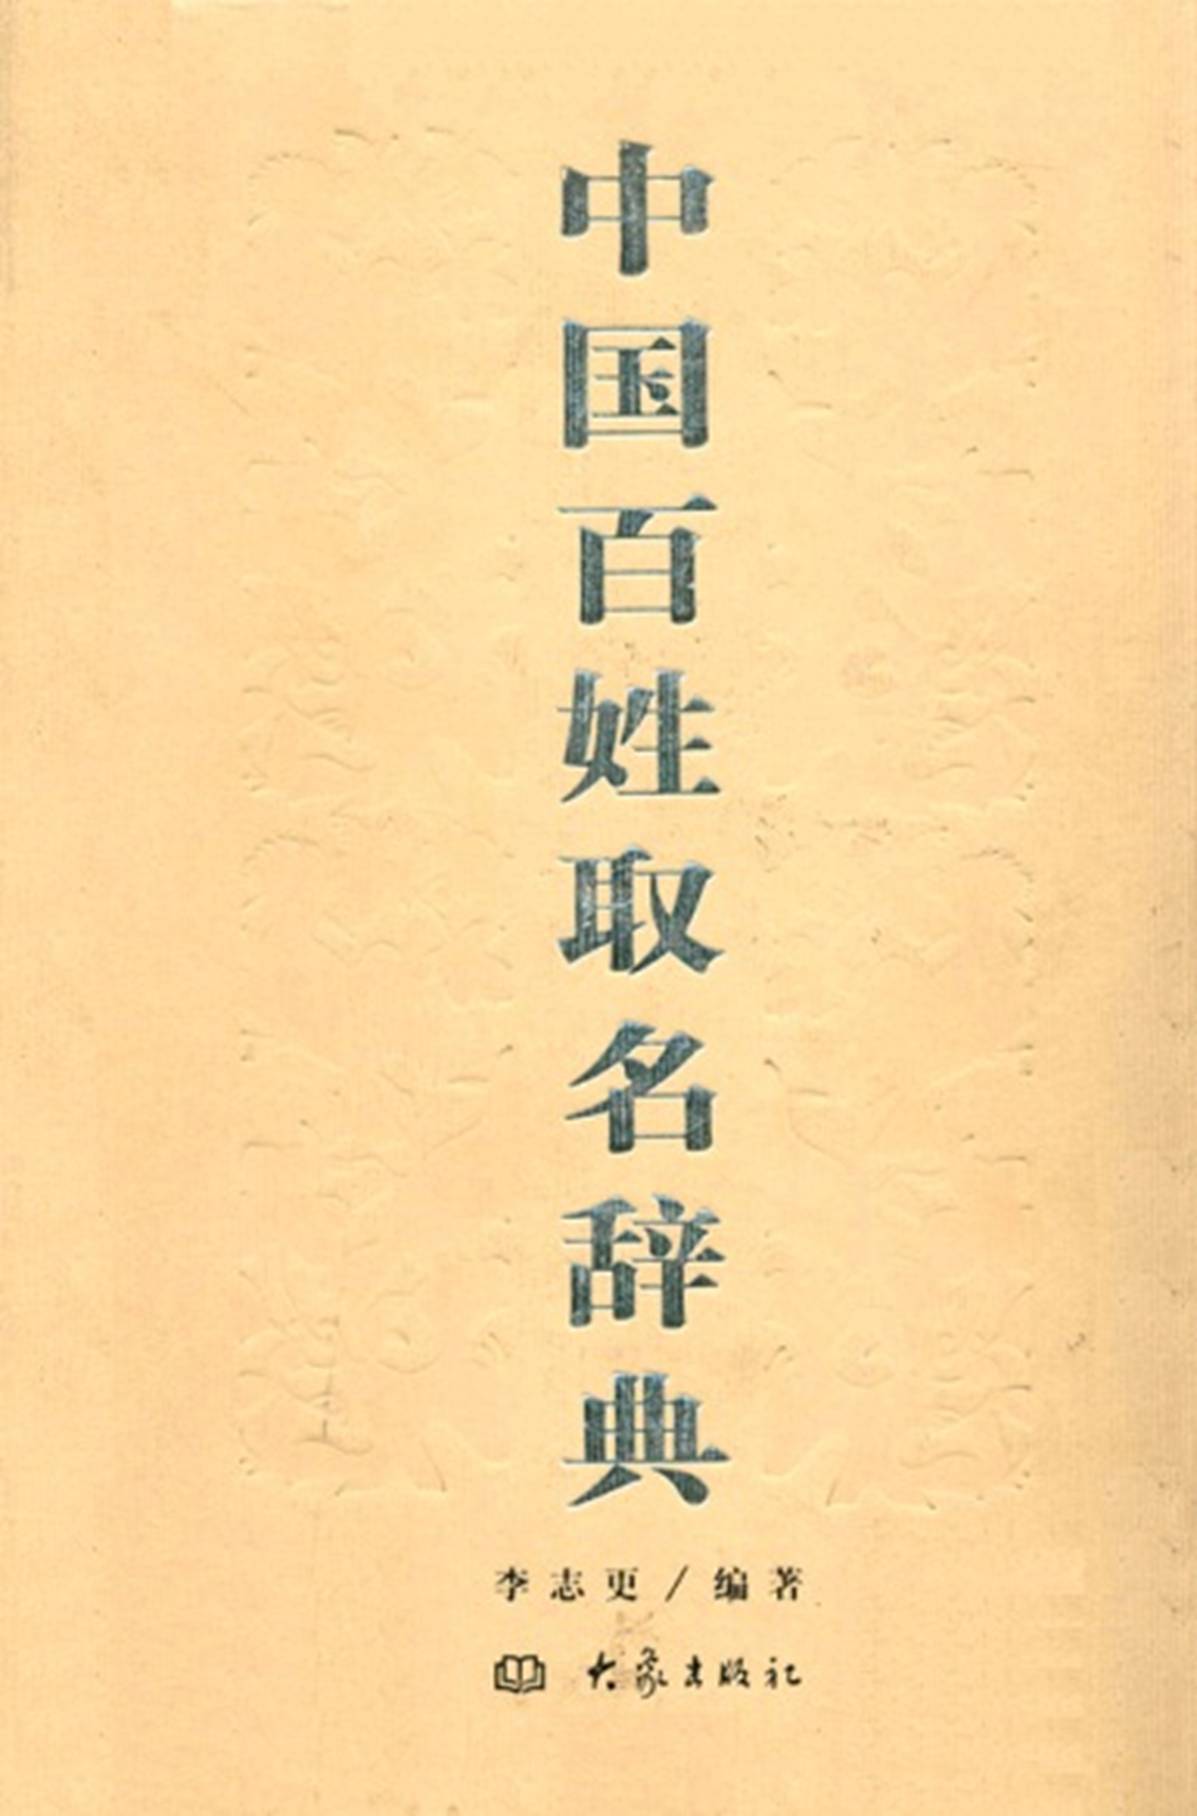 中国百姓取名辞典
李志更/编著
大象出版社